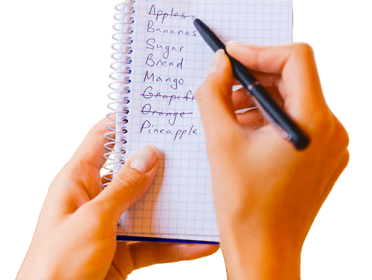 Apples
Bananas
Sugar
Bread
Mango
Grapefr
Orange
Pineapple